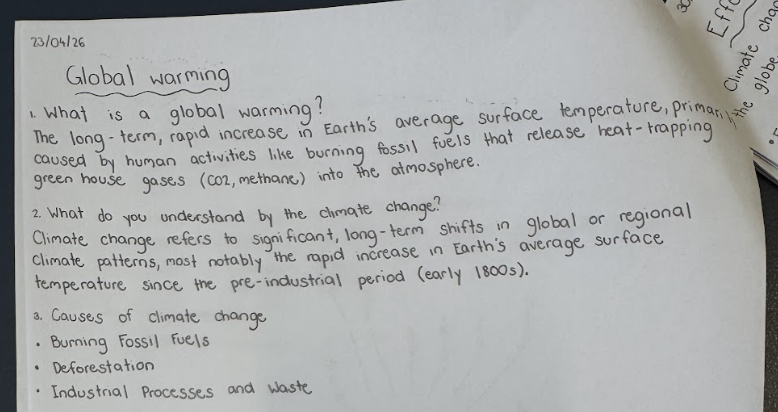 23/04/26
Global warming
1. What is a global warming?
The long-term, rapid increase in Earth's average surface temperature, primarily
caused by human activities like burning fossil fuels that release heat-trapping
green house gases (CO2, methane) into the atmosphere.
2. What do you understand by the climate change?
Climate change refers to significant, long-term shifts in global or regional
climate patterns, most notably the rapid increase in Earth's average surface
temperature since the pre-industrial period (early 1800s).
3. Causes of climate change
• Burning Fossil Fuels
• Deforestation
• Industrial Processes and Waste
30
Climate
the globe